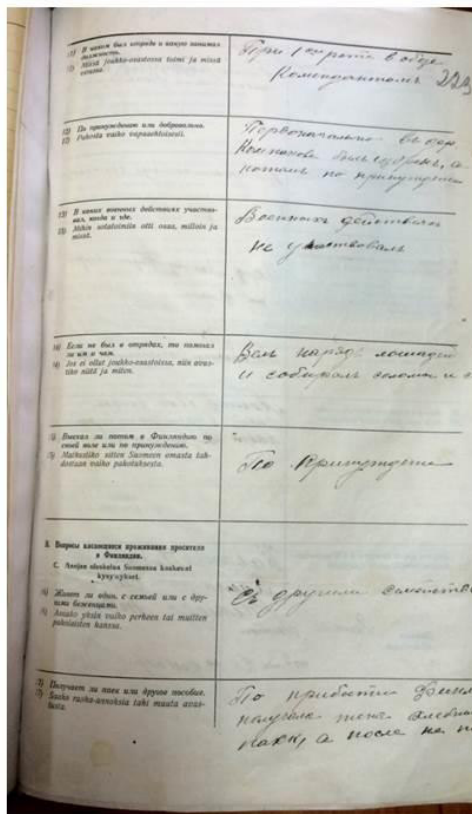 11) В каком был отряде и какую занимал
должность.
11) Missä joukko-osastossa toimi ja missä
При
в обозе
Комендантомъ
223
12) По принуждению или добровольно.
12) Pakosta vaiko vapaaehtoisesti.
Первоначально въ дер.
былъ избранъ, а
потомъ по принуждению
13) В каких военных действиях участво-
вал, когда и где.
13) Mihin sotatoimiin otti osaa, milloin ja
missä.
Военныхъ действияхъ
не участвовалъ
14) Если не был в отрядах, то помогал
ли им и чем.
14) Jos ei ollut joukko-osastoissa, niin avus-
tiko niitä ja miten.
Велъ наряд лошадей
и собиралъ солому и
Выехал ли потом в Финляндию по
своей воле или по принуждению.
Matkustiko sitten Suomeen omasta tah-
dostaan vaiko pakotuksesta.
По Принуждению
Вопросы касающиеся проживания просителя
в Финляндии.
C. Anojan oleskelua Suomessa koskevat
kysymykset.
Живет ли один, с семьей или с дру-
гими беженцами.
Asuuko yksin vaiko perheen tai muitten
pakolaisten kanssa.
Съ другими
Получает ли паек или другое пособие.
Saako ruoka-annoksia tahi muuta avus-
tusta.
По прибытии
а после не